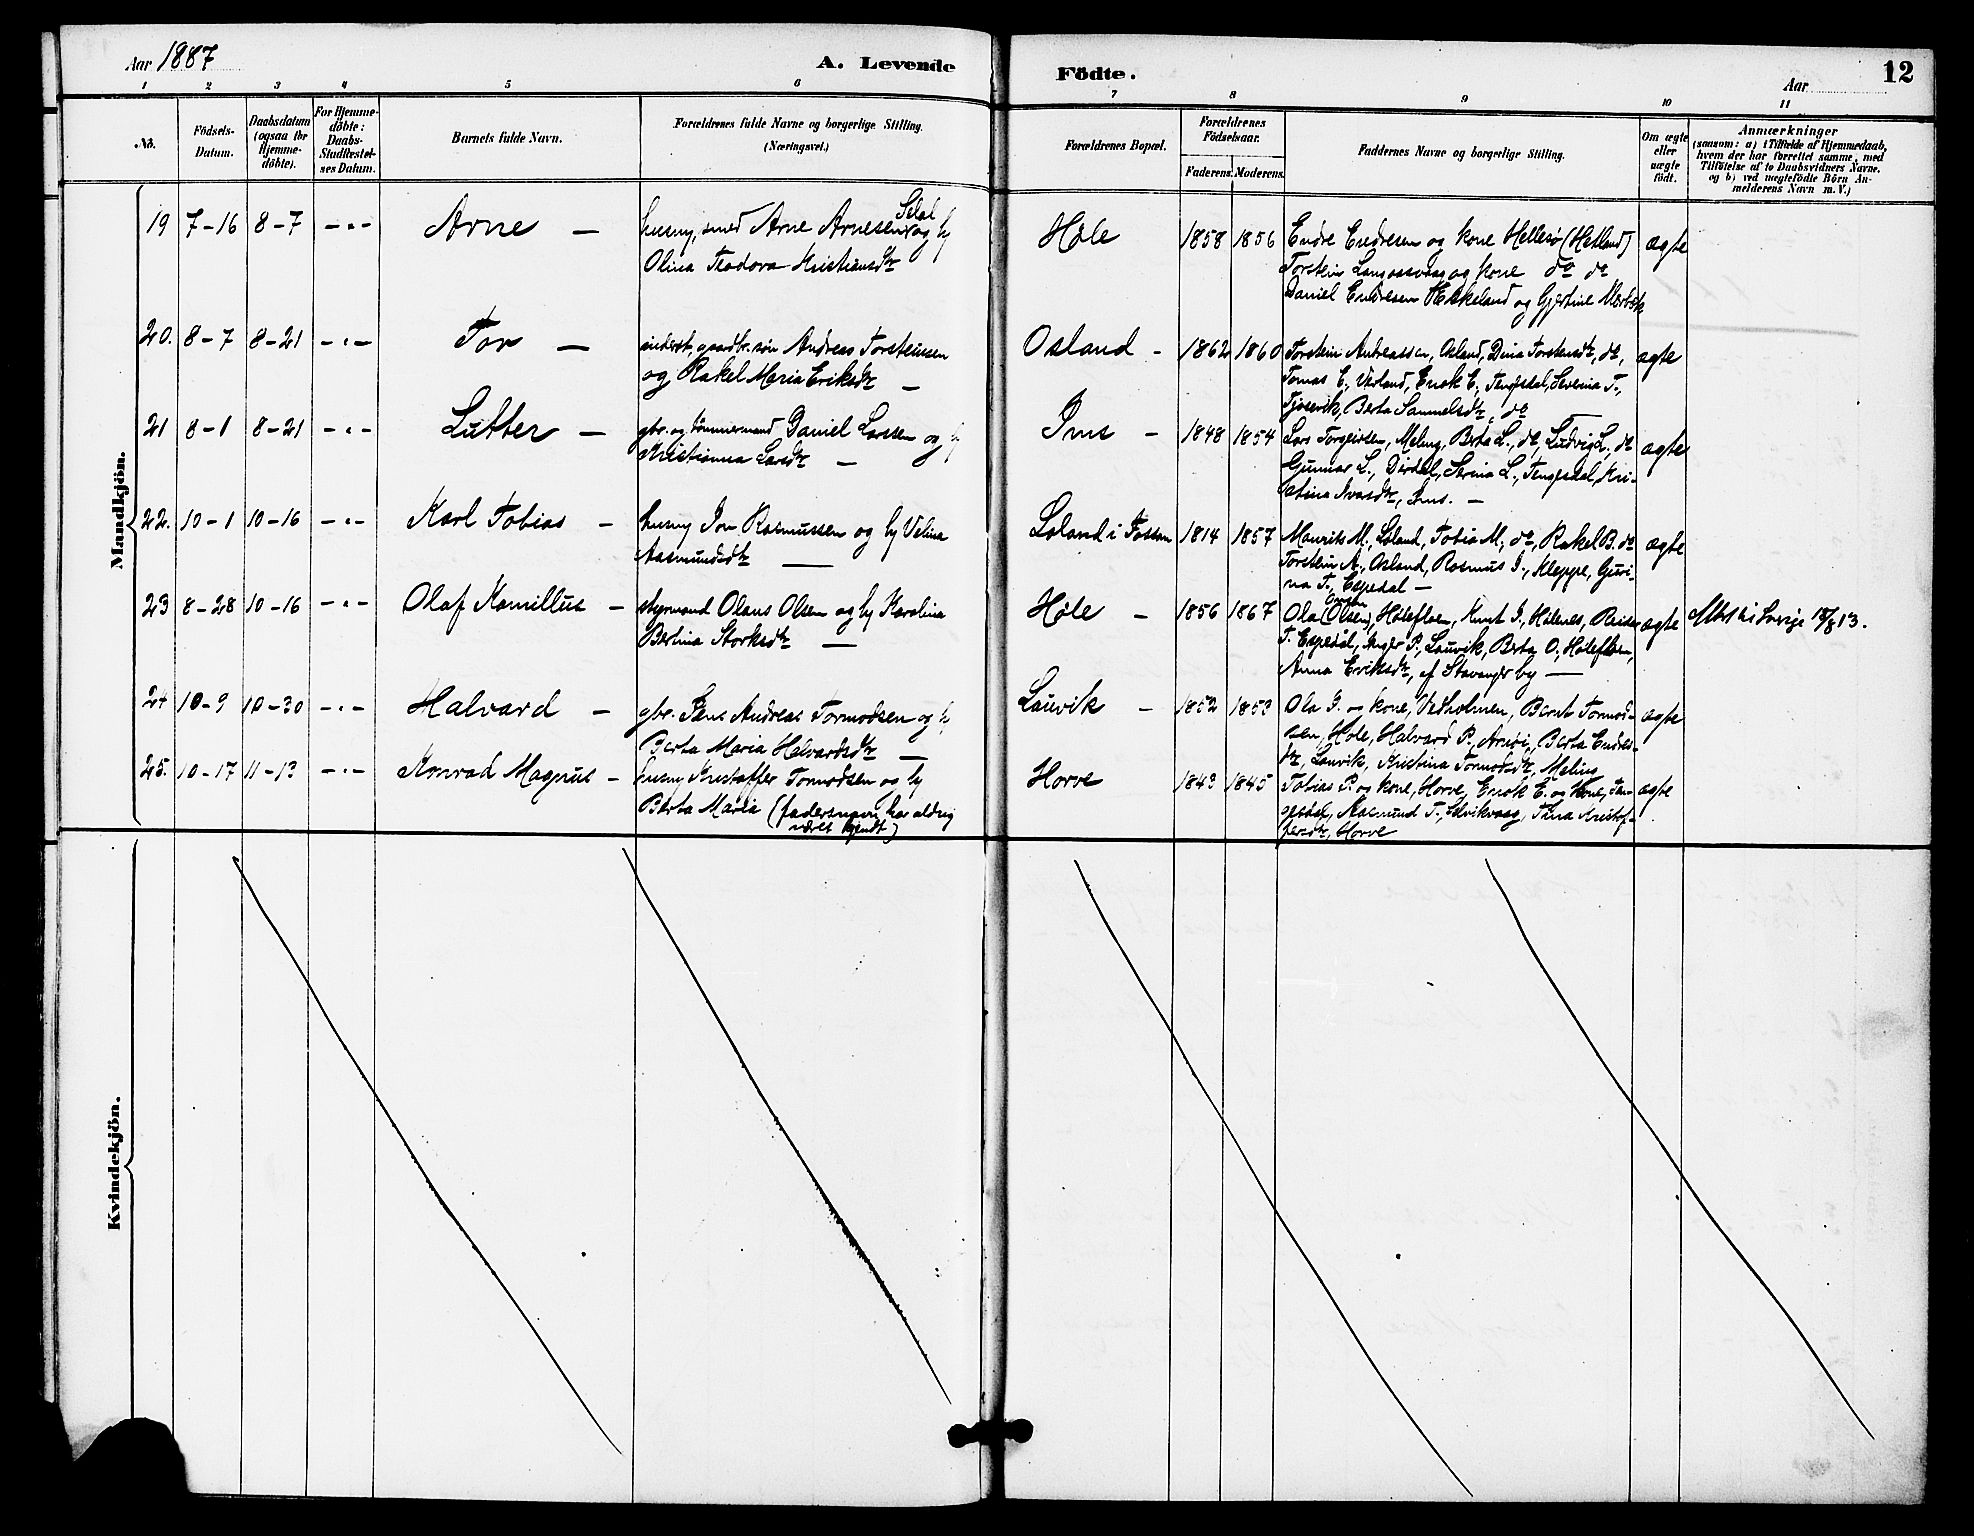 Aar 1887
A. Levende
Födte.
Aar
12
1 2 3 4 5 6 7 8 9 10 11
No.
Födsels-
Datum.
Daabsdatum
(ogsaa for
Hjemme-
döbte).
For Hjemme-
döbte:
Daabs-
Stadfæstel-
ses Datum.
Barnets fulde Navn.
Forældrenes fulde Navne og borgerlige Stilling.
(Næringsvei.)
Forældrenes Bopæl.
Forældrenes
Födselsaar.
Faderens. Moderens.
Faddernes Navne og borgerlige Stilling.
Om ægte
eller
uægte
födt.
Anmærkninger
(saasom: a) i Tilfælde af Hjemmedaab,
hvem der har forrettet samme, med
Tilföielse af to Daabsvidners Navne.
og b) ved uægtefödte Börn An-
melderens Navn m. V.)
Mandkjön.
19 7-16 8-7 - " - Arne -
husmy, smed Arne Arnesen og hy
Olina Teodora Kristiansdtr
Höle
1858 1856
Endre Endresen og kone Hellesö (Hetland)
Torstein Langaasvaag og kone do do
Daniel Endresen Eskeland og Gjertine
ægte
20. 8-7 8-21 - " - Tor -
inderst, gaardbr. sön Andreas Torsteinsen
og Rakel Maria Eriksdtr -
Osland -
1862 1860
Torstein Andreassen, Osland, Dina Torsteinsdtr, do,
Tomas E., Verland, Enok E., Tengesdal, Severina T.,
Tjosevik, Berta Samuelsdtr, do
ægte
21 8-1 8-21 - " - Lutter -
gbr. og tömmermand Daniel Larssen og hy
Kristianna Larsdtr -
Ims -
1848 1854
Lars Torgeirsen, Meling, Berta L., do, Ludvig L., do
Gunnar L., Dirdal, Serina L., Tengesdal, Kri-
stina Ivarsdtr, Ims. -
ægte
22. 10-1 10-16 - " - Karl Tobias -
husmy Jon Rasmussen og hy Velina
Aasmundsdtr -
Löland i Fossan
1814 1857
Maurits M., Löland, Tobia M., do, Rakel B. do
Torstein A., Osland, Rasmus J., Kleppe, Guri-
na T., Espedal -
ægte
23 8-28 10-16 - " - Olaf Kamillus -
styrmand Olaus Olsen og hy Karolina
Bertina Storksdtr -
Höle -
1856 1867
Ola (Olsen), Höleflöen, Knut J., Hölenes, Reidar
T. Espedal, Inger P., Lauvik, Berta O., Höleflöen,
Anna Eriksdtr, af Stavanger by -
ægte
24 10-9 10-30 - " - Halvard -
gbr. Jens Andreas Tormodsen og hy
Berta Maria Halvardsdtr -
Lauvik -
1852 1853
Ola G. og kone, Vedholmen, Bernt Tormod-
sen, Höle, Halvard P., Arnöi, Berta Endres-
dtr, Lauvik, Kristina Tormodsdtr, Meling
ægte
25. 10-17 11-13 - " - Konrad Magnus -
husmy Kristoffer Tormodsen og hy
Berta Maria (fadersnavn har aldrig
været kjendt)
Horve
1843 1845
Tobias P. og kone, Horve, Enok E. og kone, Ten-
gesdal, Aasmund T., Selvikvaag, Tina Kristof-
fersdtr, Horve
ægte
Kvindekjön.